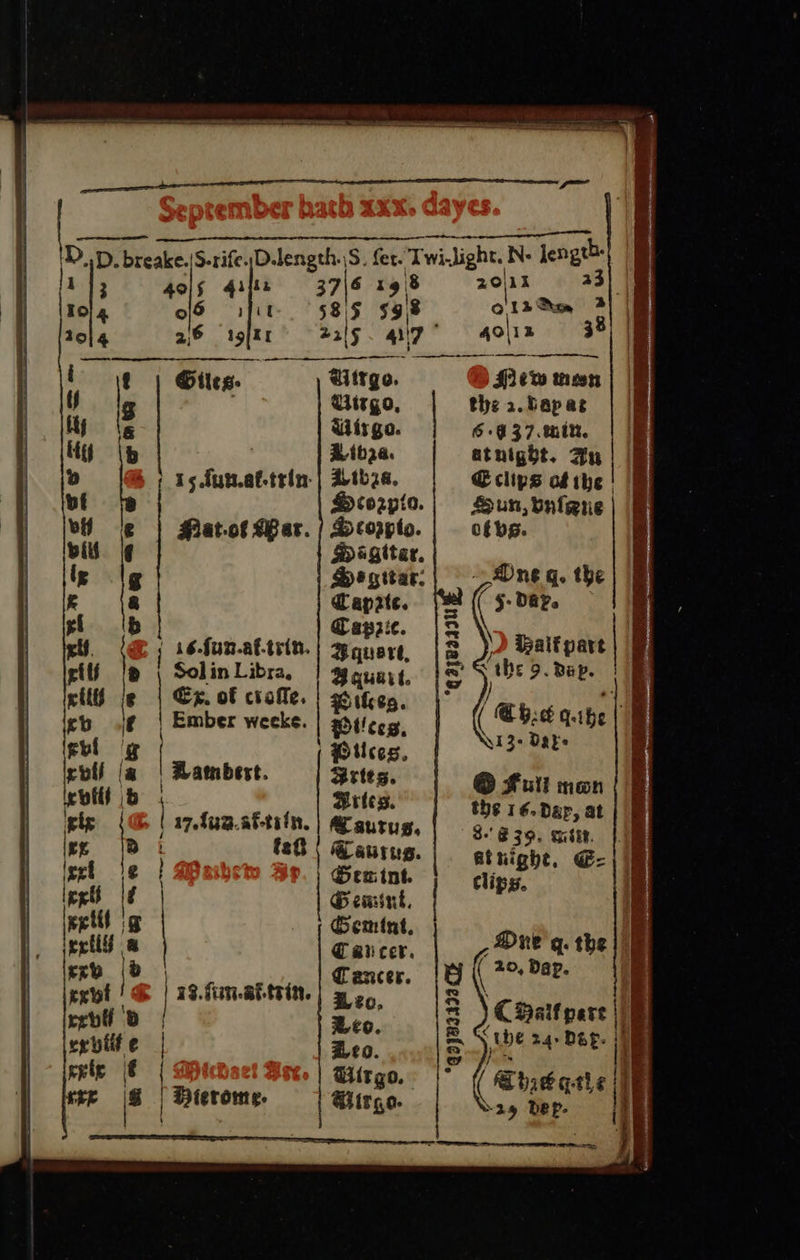 September hath xxx. dayes.
D. D. breake. S. rise. D. length. S. set. Twi-light. N. length.
1 3 40 5 41 12 37 6 19 8 20 11 23
10 4 0 6 1 58 5 59 8 0 12 2
20 4 2 6 19 11 22 5 41 7 40 12 38
i f Giles. Virgo. New moon
ii g Virgo. the 2. day at
iii a Virgo. 6. 37. min.
iiii b Libza. at night. An
v 15. sun. af. trin. Libza. Eclips of the
vi Scorpio. Sun, vnseene
vii e Nat. of Mar. Scorpio. of vs.
viii f Sagittar.
ix g Sagittar. One q. the
x a Capric. 5. day.
xi b Capric. Increased.
xii. 16. sun. af. trin. Aquari. Half part
xiii d Sol in Libra. Aquari. the 9. day.
xiiii e Ex. of crosse. Pisces.
xv f Ember weeke. Pisces. Three q. the
xvi g Pisces. 13. daye
xvii a Lambert. Aries. Full moon
xviii b Aries. the 16. day, at
xix 17. sun. af. trin. Taurus. 8. 39. min.
xx D fast Taurus. at night. E-
xxi e Mathew Ap. Gemini. clips.
xxii f Gemini.
xxiii g Gemini.
xxiiii a Cancer. One q. the
xxv b Cancer. 20. day.
xxvi 18. sun. af. trin. Leo. Decreased.
xxvii D Leo. Half part
xxviii e Leo. the 24. day.
xxix f Michael Arc. Virgo. Three q. the
xxx g Hierome. Virgo. 29 day.